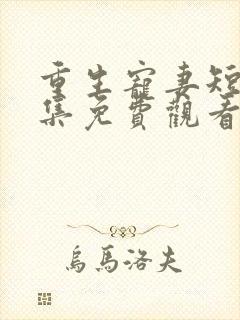 重生寵妻短
集免費觀看
烏馬洛夫